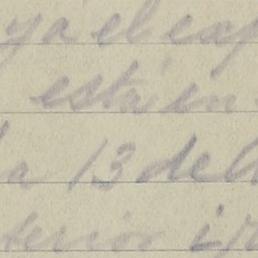 ya el cap
está en
a 13 del
terior i